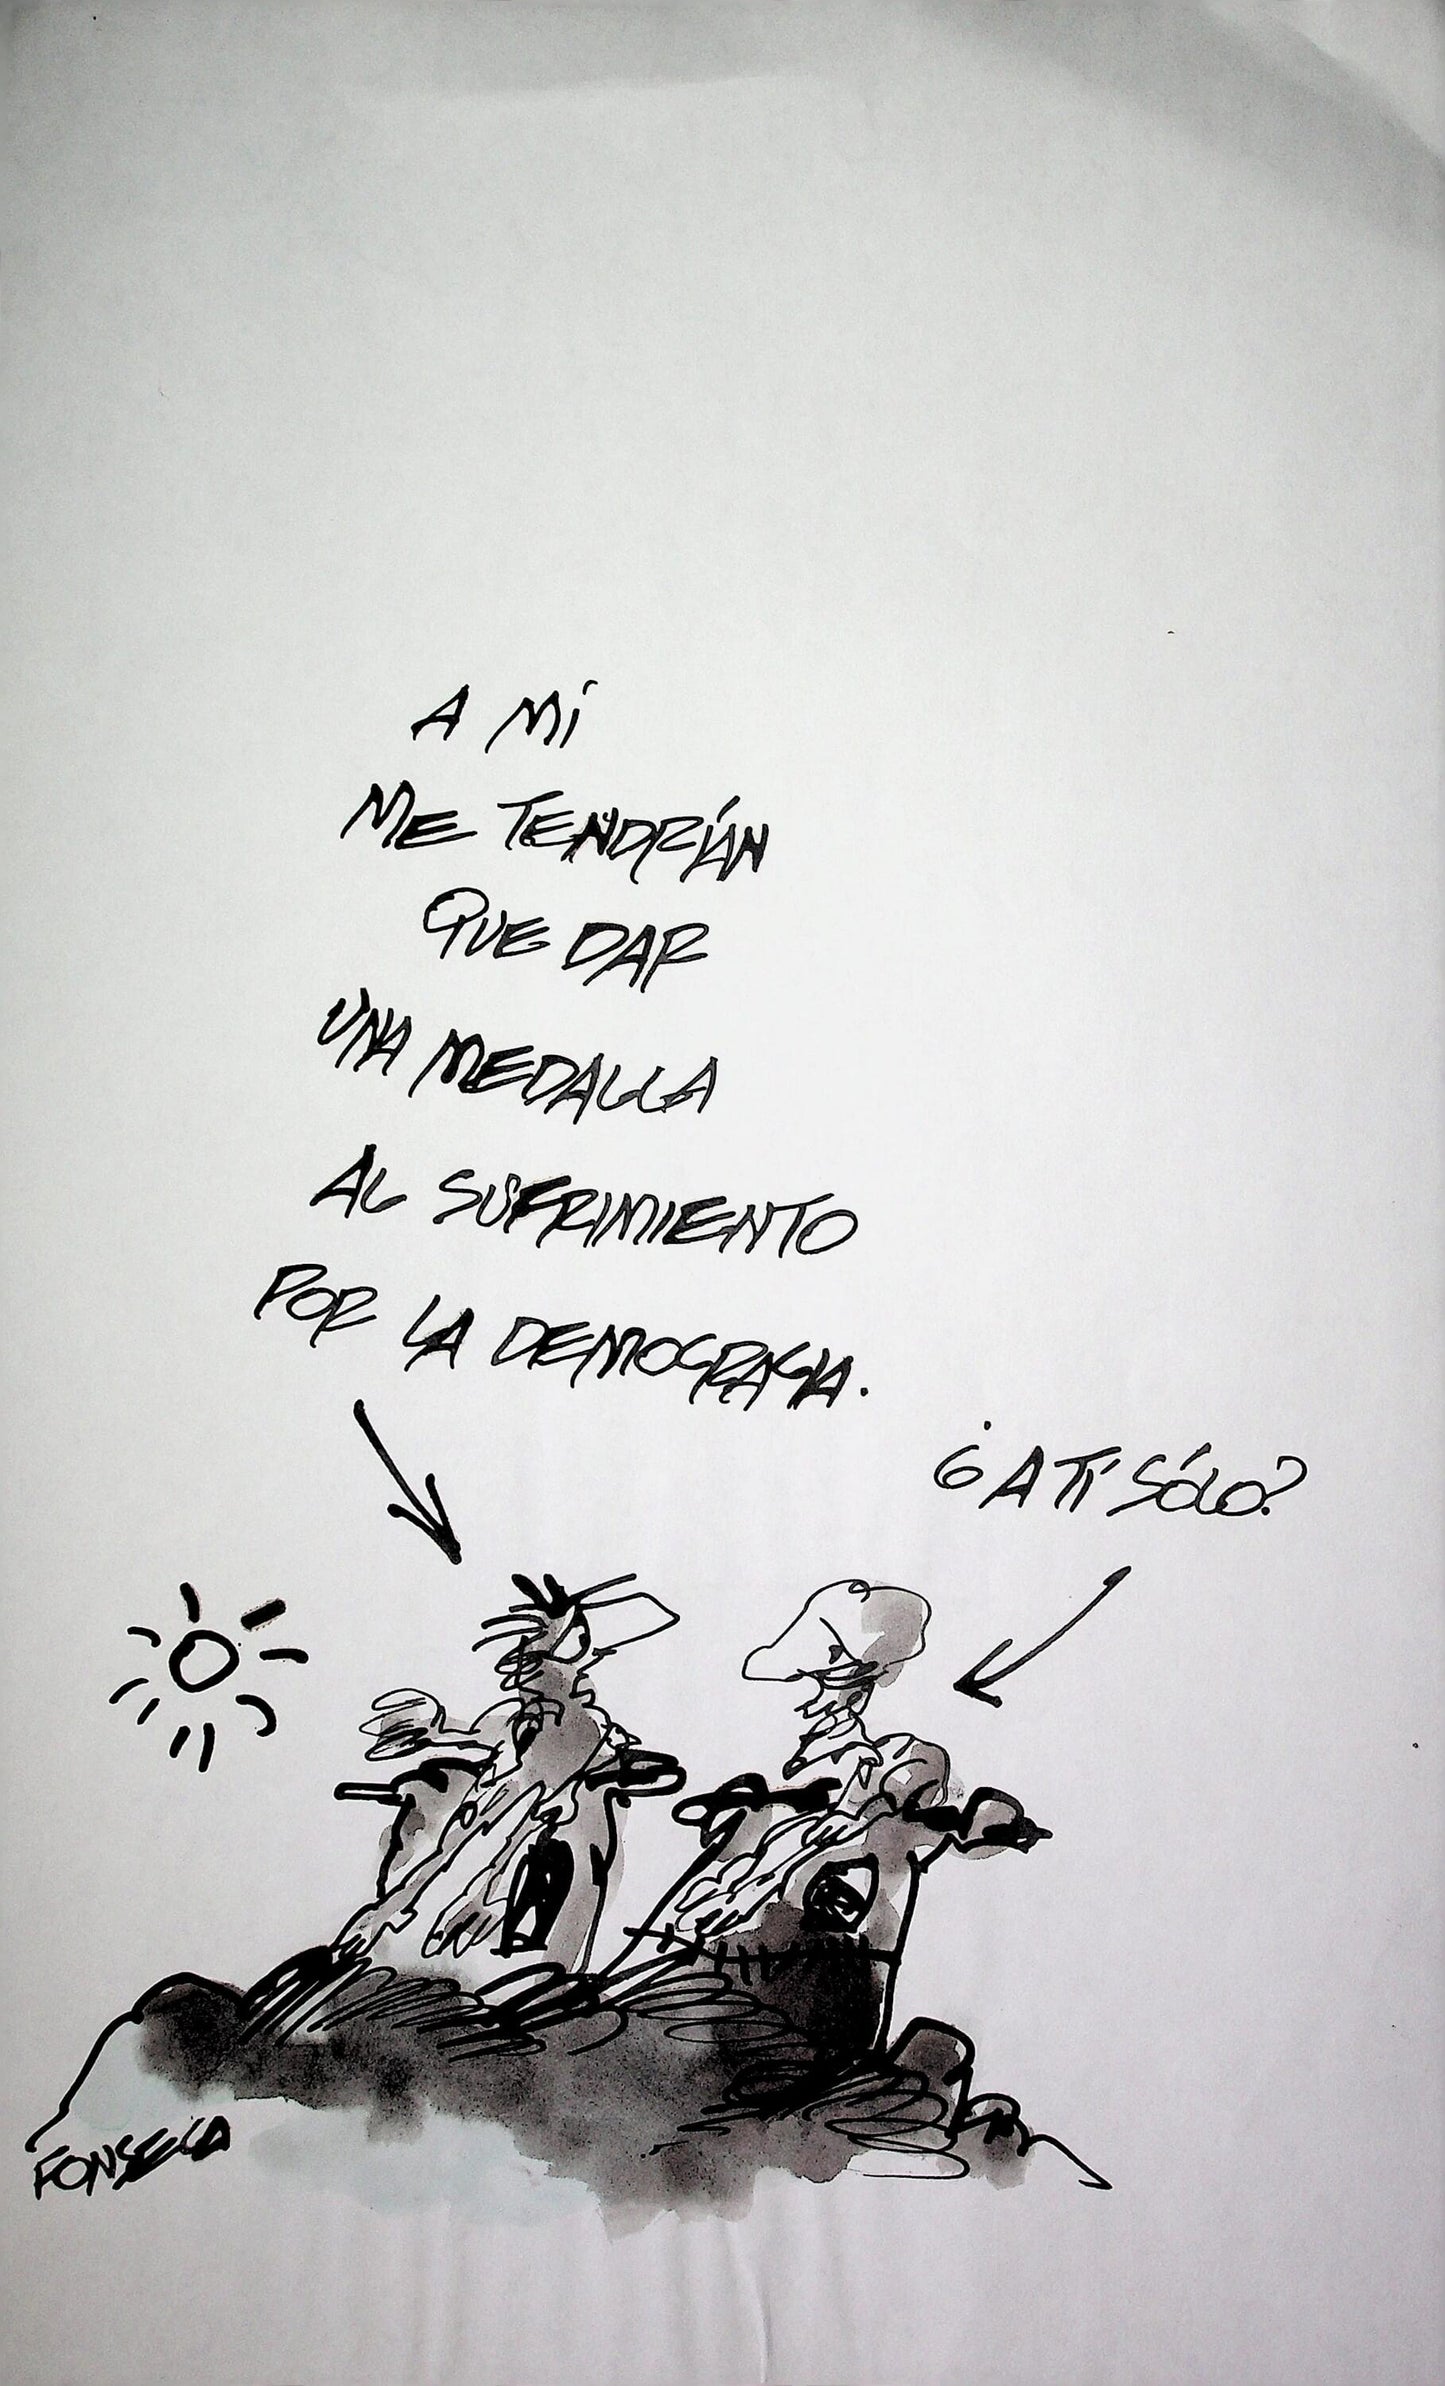 A MÍ
ME TENDRÁN
QUE DAR
UNA MEDALLA
AL SUFRIMIENTO
POR LA DEMOCRACIA.
¿A TÍ SÓLO?
FONSECA